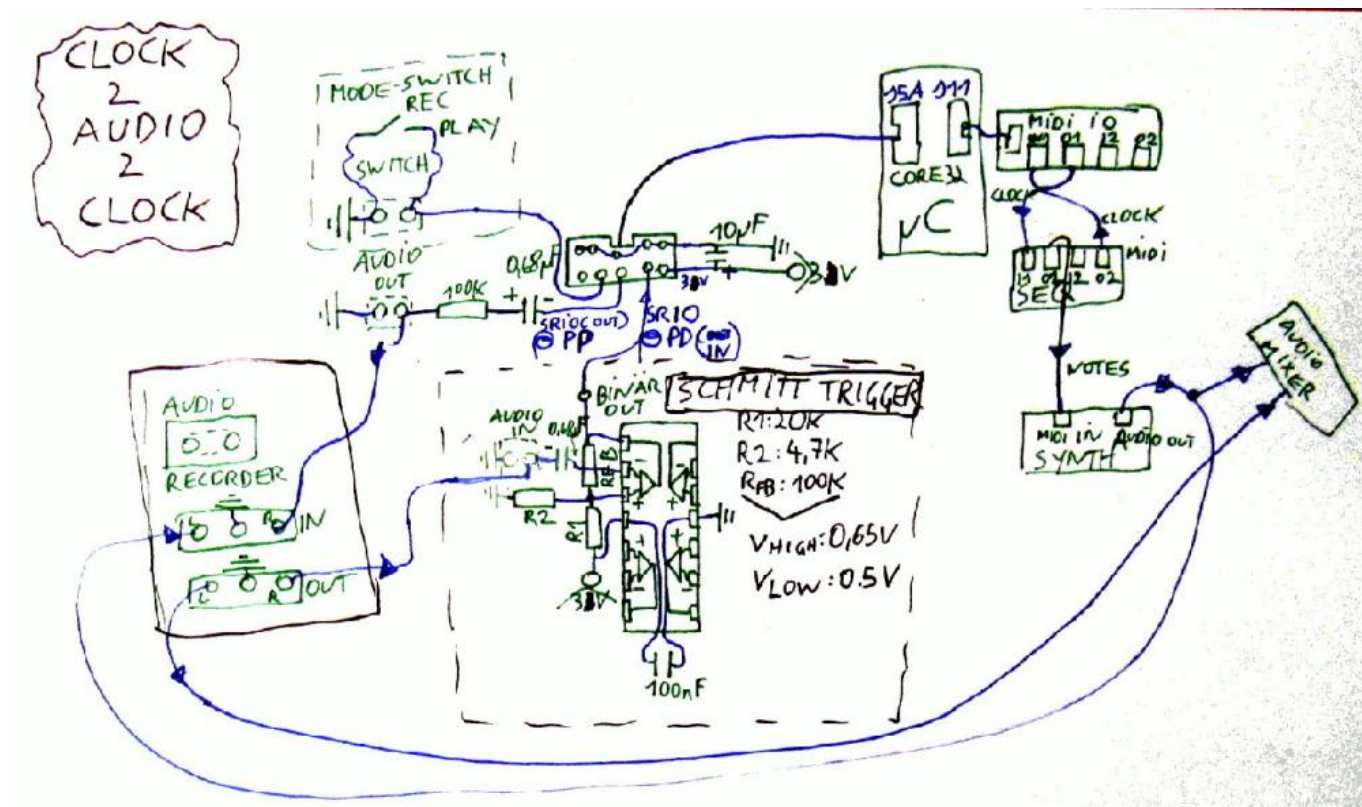 CLOCK
2
AUDIO
2
CLOCK
MODE-SWITCH
REC
PLAY
SWITCH
AUDIO
OUT
100K
+
-
0,68µF
10µF
+
SRIO(OUT)
PP
SRIO
PD
IN
15A
J11
CORE32
µC
MIDI IO
O1
I2
O2
CLOCK
CLOCK
MIDI
I1 O1 I2 O2
SEQ
NOTES
MIDI IN
AUDIO OUT
SYNTH
AUDIO
MIXER
AUDIO
RECORDER
L
R
IN
L
R
OUT
BINÄR
OUT
AUDIO
IN
RFB
R2
R1
100nF
SCHMITT TRIGGER
R1:20K
R2:4,7K
RFB:100K
VHIGH:0,65V
VLOW:0.5V